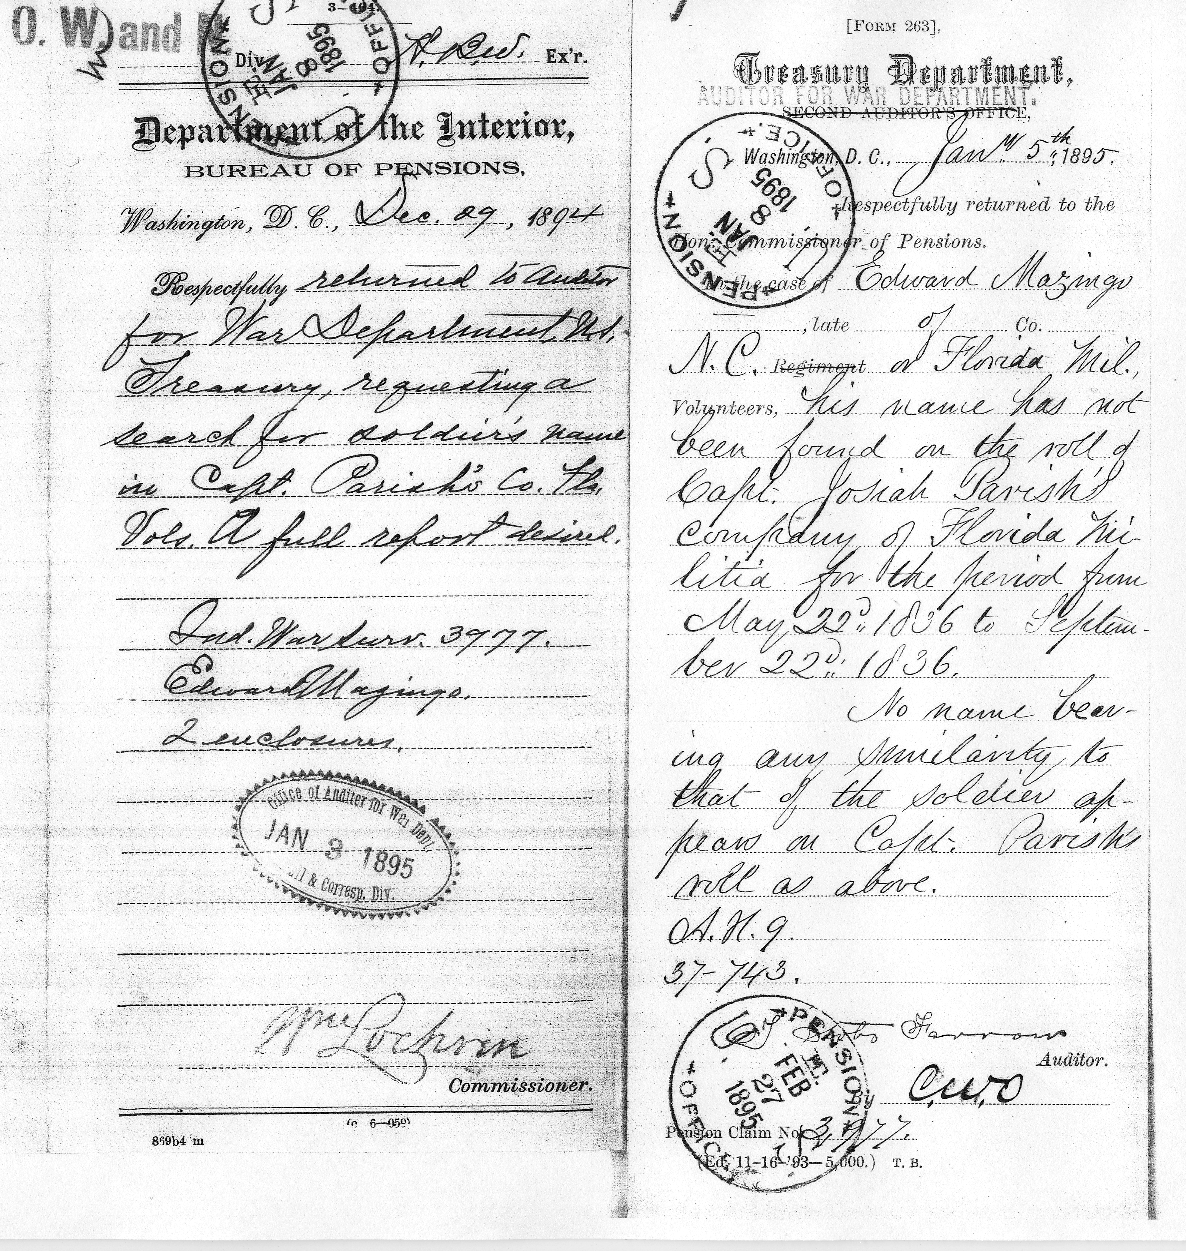 O. W. and
3-494.
Div. A. B. W. Ex'r.
Department of the Interior,
BUREAU OF PENSIONS,
Washington, D. C., Dec. 29, 1894
Respectfully returned to Auditor
for War Department, U.S.
Treasury, requesting a
search for soldier's name
in Capt. Parish's Co. Fla.
Vols. A full report desired.
Ind. War Surv. 3977.
Edward Mazingo.
2 enclosures.
Office of Auditor for War Dept.
JAN 3 1895
Mail & Corresp. Div.
Wm Lochren
Commissioner.
6-059
869b4 m
U. S. PENSION OFFICE
JAN 8 1895
[FORM 263],
Treasury Department,
AUDITOR FOR WAR DEPARTMENT.
SECOND AUDITOR'S OFFICE,
Washington, D. C., Jany 5th, 1895.
Respectfully returned to the
Hon. Commissioner of Pensions.
In the case of Edward Mazingo
, late of Co.
N.C. Regiment or Florida Mil.,
Volunteers, his name has not
been found on the roll of
Capt. Josiah Parish's
company of Florida Mi-
litia for the period from
May 22d. 1836 to Septem-
ber 22d. 1836.
No name bear-
ing any similarity to
that of the soldier ap-
pears on Capt. Parish's
roll as above.
A.H.G.
37-743.
Farrow
Auditor.
By C.W.O
Pension Claim No. 3977.
(Ed. 11-16-'93-5,000.) T. B.
U. S. PENSION OFFICE
JAN 8 1895
U. S. PENSION OFFICE
FEB 27 1895